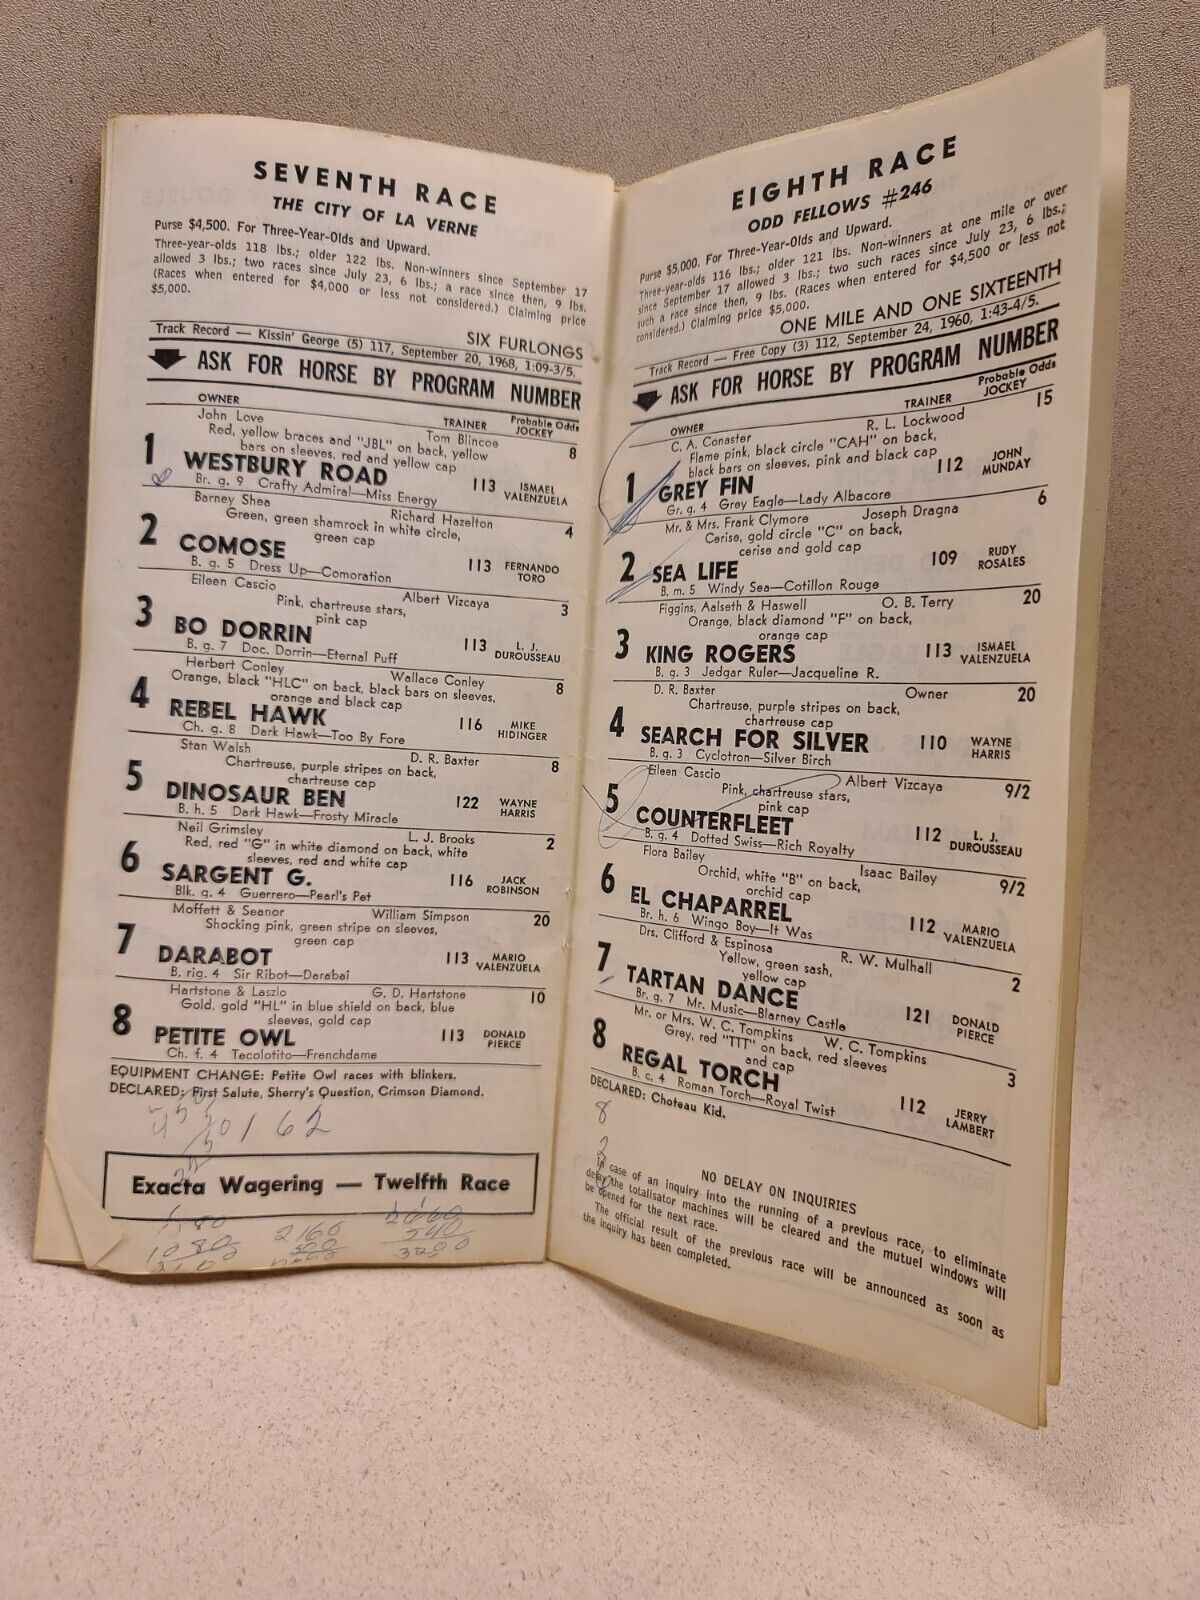 SEVENTH RACE
THE CITY OF LA VERNE
Purse $4,500. For Three-Year-Olds and Upward.
Three-year-olds 118 lbs.; older 122 lbs. Non-winners since September 17
allowed 3 lbs.; two races since July 23, 6 lbs.; a race since then, 9 lbs.
(Races when entered for $4,000 or less not considered.) Claiming price
$5,000.
SIX FURLONGS
Track Record — Kissin' George (5) 117, September 20, 1968, 1:09-3/5.
ASK FOR HORSE BY PROGRAM NUMBER
OWNER TRAINER Probable Odds
JOCKEY
John Love Tom Blincoe 8
Red, yellow braces and "JBL" on back, yellow
bars on sleeves, red and yellow cap
1 WESTBURY ROAD 113 ISMAEL VALENZUELA
Br. g. 9 Crafty Admiral—Miss Energy
Barney Shea Richard Hazelton 4
Green, green shamrock in white circle,
green cap
2 COMOSE 113 FERNANDO TORO
B. g. 5 Dress Up—Comoration
Eileen Cascio Albert Vizcaya 3
Pink, chartreuse stars,
pink cap
3 BO DORRIN 113 L. J. DUROUSSEAU
B. g. 7 Doc. Dorrin—Eternal Puff
Herbert Conley Wallace Conley 8
Orange, black "HLC" on back, black bars on sleeves,
orange and black cap
4 REBEL HAWK 116 MIKE HIDINGER
Ch. g. 8 Dark Hawk—Too By Fore
Stan Walsh D. R. Baxter 8
Chartreuse, purple stripes on back,
chartreuse cap
5 DINOSAUR BEN 122 WAYNE HARRIS
B. h. 5 Dark Hawk—Frosty Miracle
Neil Grimsley L. J. Brooks 2
Red, red "G" in white diamond on back, white
sleeves, red and white cap
6 SARGENT G. 116 JACK ROBINSON
Blk. g. 4 Guerrero—Pearl's Pet
Moffett & Seanor William Simpson 20
Shocking pink, green stripe on sleeves,
green cap
7 DARABOT 113 MARIO VALENZUELA
B. rig. 4 Sir Ribot—Darabai
Hartstone & Laszlo G. D. Hartstone 10
Gold, gold "HL" in blue shield on back, blue
sleeves, gold cap
8 PETITE OWL 113 DONALD PIERCE
Ch. f. 4 Tecolotito—Frenchdame
EQUIPMENT CHANGE: Petite Owl races with blinkers.
DECLARED: First Salute, Sherry's Question, Crimson Diamond.
162
Exacta Wagering — Twelfth Race
1080 2160 540
EIGHTH RACE
ODD FELLOWS #246
Purse $5,000. For Three-Year-Olds and Upward.
Three-year-olds 116 lbs.; older 121 lbs. Non-winners at one mile or over
since September 17 allowed 3 lbs.; two such races since July 23, 6 lbs.;
such a race since then, 9 lbs. (Races when entered for $4,500 or less not
considered.) Claiming price $5,000.
ONE MILE AND ONE SIXTEENTH
Track Record — Free Copy (3) 112, September 24, 1960, 1:43-4/5.
ASK FOR HORSE BY PROGRAM NUMBER
OWNER TRAINER Probable Odds
JOCKEY
C. A. Conaster R. L. Lockwood 15
Flame pink, black circle "CAH" on back,
black bars on sleeves, pink and black cap
1 GREY FIN 112 JOHN MUNDAY
Gr. g. 4 Grey Eagle—Lady Albacore
Mr. & Mrs. Frank Clymore Joseph Dragna 6
Cerise, gold circle "C" on back,
cerise and gold cap
2 SEA LIFE 109 RUDY ROSALES
B. m. 5 Windy Sea—Cotillon Rouge
Figgins, Aalseth & Haswell O. B. Terry 20
Orange, black diamond "F" on back,
orange cap
3 KING ROGERS 113 ISMAEL VALENZUELA
B. g. 3 Jedgar Ruler—Jacqueline R.
D. R. Baxter Owner 20
Chartreuse, purple stripes on back,
chartreuse cap
4 SEARCH FOR SILVER 110 WAYNE HARRIS
B. g. 3 Cyclotron—Silver Birch
Eileen Cascio Albert Vizcaya 9/2
Pink, chartreuse stars,
pink cap
5 COUNTERFLEET 112 L. J. DUROUSSEAU
B. g. 4 Dotted Swiss—Rich Royalty
Flora Bailey Isaac Bailey 9/2
Orchid, white "B" on back,
orchid cap
6 EL CHAPARREL 112 MARIO VALENZUELA
Br. h. 6 Wingo Boy—It Was
Drs. Clifford & Espinosa R. W. Mulhall 2
Yellow, green sash,
yellow cap
7 TARTAN DANCE 121 DONALD PIERCE
Br. g. 7 Mr. Music—Blarney Castle
Mr. or Mrs. W. C. Tompkins W. C. Tompkins 3
Grey, red "TTT" on back, red sleeves
and cap
8 REGAL TORCH 112 JERRY LAMBERT
B. c. 4 Roman Torch—Royal Twist
DECLARED: Choteau Kid.
8
2
NO DELAY ON INQUIRIES
In case of an inquiry into the running of a previous race, to eliminate
delay the totalisator machines will be cleared and the mutuel windows will
be opened for the next race.
The official result of the previous race will be announced as soon as
the inquiry has been completed.